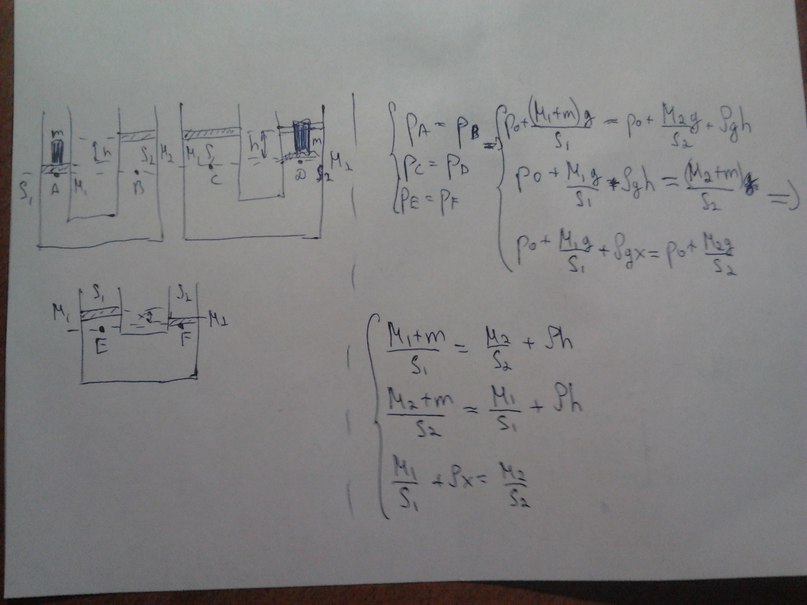 m h S₂ M₂
S₁ A M₁ B
M₁ S₁ C h m D S₂ M₂
M₁ S₁ x S₂ M₂
E F
p_A = p_B
p_C = p_D
p_E = p_F
=> p₀ + (M₁+m)g/S₁ = p₀ + M₂g/S₂ + ρgh
p₀ + M₁g/S₁ + ρgh = (M₂+m)g/S₂ =>
p₀ + M₁g/S₁ + ρgx = p₀ + M₂g/S₂
(M₁+m)/S₁ = M₂/S₂ + ρh
(M₂+m)/S₂ = M₁/S₁ + ρh
M₁/S₁ + ρx = M₂/S₂